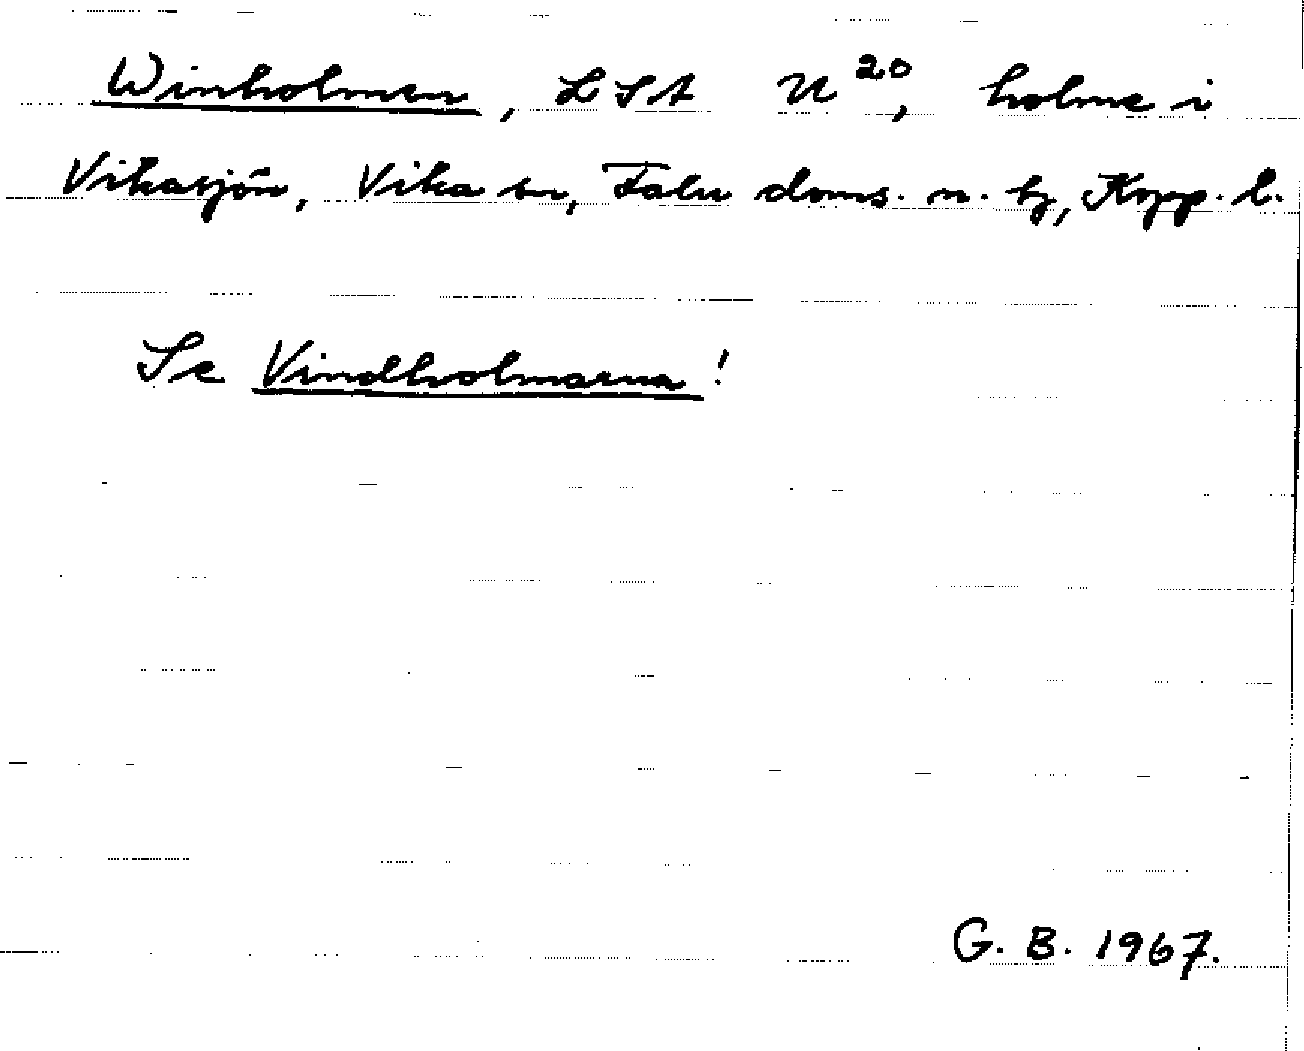 Winholmen, LSA U²⁰, holme i
Vikasjön, Vika sn, Falu doms. n. tg, Kopp. l.
Se Vindholmarna!
G. B. 1967.